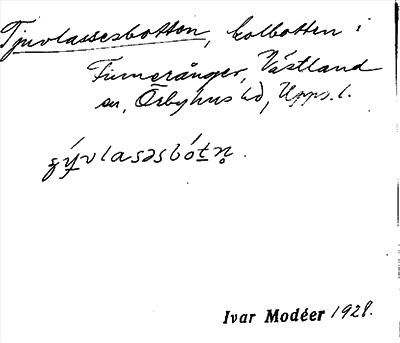 Tjuvlassesbotten, kolbotten i
Finneränger, Västland
sn, Örbyhus hd, Upps. l.
ʒý̱vlasəsbót̠n̥.
Ivar Modéer 1928.